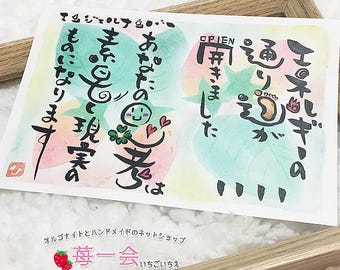 エンジェルナンバー
1111
エネルギーの
通り道が
OPEN
開きました
あなたの思考は
素晶しく現実の
ものになります
オルゴナイトとハンドメイドのネットショップ
苺一会
いちごいちえ